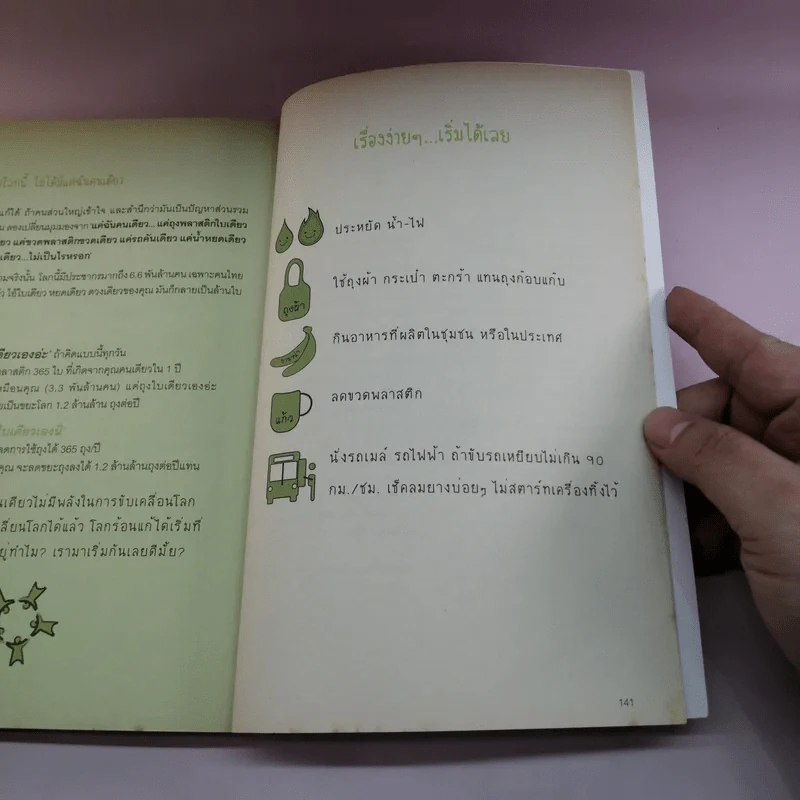 ไม่ได้มีแค่ฉันคนเดียว
แก้ได้ ถ้าคนส่วนใหญ่เข้าใจ และสำนึกว่ามันเป็นปัญหาส่วนรวม
ลองเปลี่ยนมุมมองจาก 'แค่ฉันคนเดียว... แค่ถุงพลาสติกใบเดียว
แค่ขวดพลาสติกขวดเดียว แค่รถคันเดียว แค่น้ำหยดเดียว
...ไม่เป็นไรหรอก'
โลกนี้มีประชากรมากถึง 6.6 พันล้านคน เฉพาะคนไทย
ไอ้ใบเดียว หยดเดียว ดวงเดียวของคุณ มันก็กลายเป็นล้านใบ
ถ้าคิดแบบนี้ทุกวัน
365 ใบ ที่เกิดจากคุณคนเดียวใน 1 ปี
(3.3 พันล้านคน) แค่ถุงใบเดียวเองอ่ะ
เป็นขยะโลก 1.2 ล้านล้าน ถุงต่อปี
ลดการใช้ถุงได้ 365 ถุง/ปี
คุณ จะลดขยะถุงลงได้ 1.2 ล้านล้านถุงต่อปีแทน
ไม่มีพลังในการขับเคลื่อนโลก
โลกได้แล้ว โลกร้อนแก้ได้เริ่มที่
ทำไม? เรามาเริ่มกันเลยดีมั้ย?
เรื่องง่ายๆ...เริ่มได้เลย
ประหยัด น้ำ-ไฟ
ใช้ถุงผ้า กระเป๋า ตะกร้า แทนถุงก๊อบแก๊บ
ถุงผ้า
กินอาหารที่ผลิตในชุมชน หรือในประเทศ
ลดขวดพลาสติก
แก้ว
นั่งรถเมล์ รถไฟฟ้า ถ้าขับรถเหยียบไม่เกิน ๙๐
กม./ชม. เช็คลมยางบ่อยๆ ไม่สตาร์ทเครื่องทิ้งไว้
141